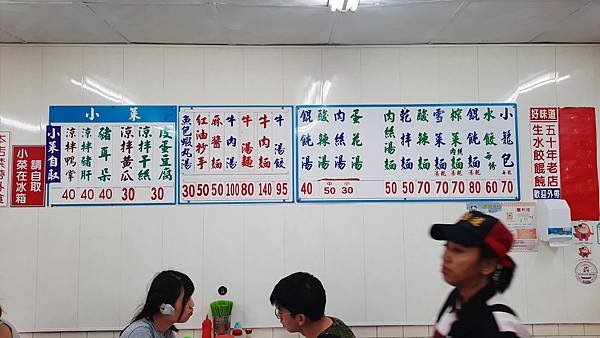 小菜
小菜自取
涼拌鴨掌 40
涼拌豬肝 40
豬耳朵 40
涼拌黃瓜 30
涼拌干絲
皮蛋豆腐 30
魚包蝦丸湯 30
紅油抄手 50
麻醬麵 50
牛肉湯 100
牛肉湯麵 80
牛肉麵 140
牛湯餃 95
餛飩湯 40
酸辣湯
肉絲湯
蛋花湯
中 50
小 30
肉絲湯 50
乾拌麵 50
酸辣麵 70
雪菜麵 湯乾 70
榨菜肉絲麵 湯乾 70
餛飩麵 湯乾 80
水餃 60
小籠包 70
請自取
小菜在冰箱
好味道
生水餃餛飩
歡迎外帶
五十年老店